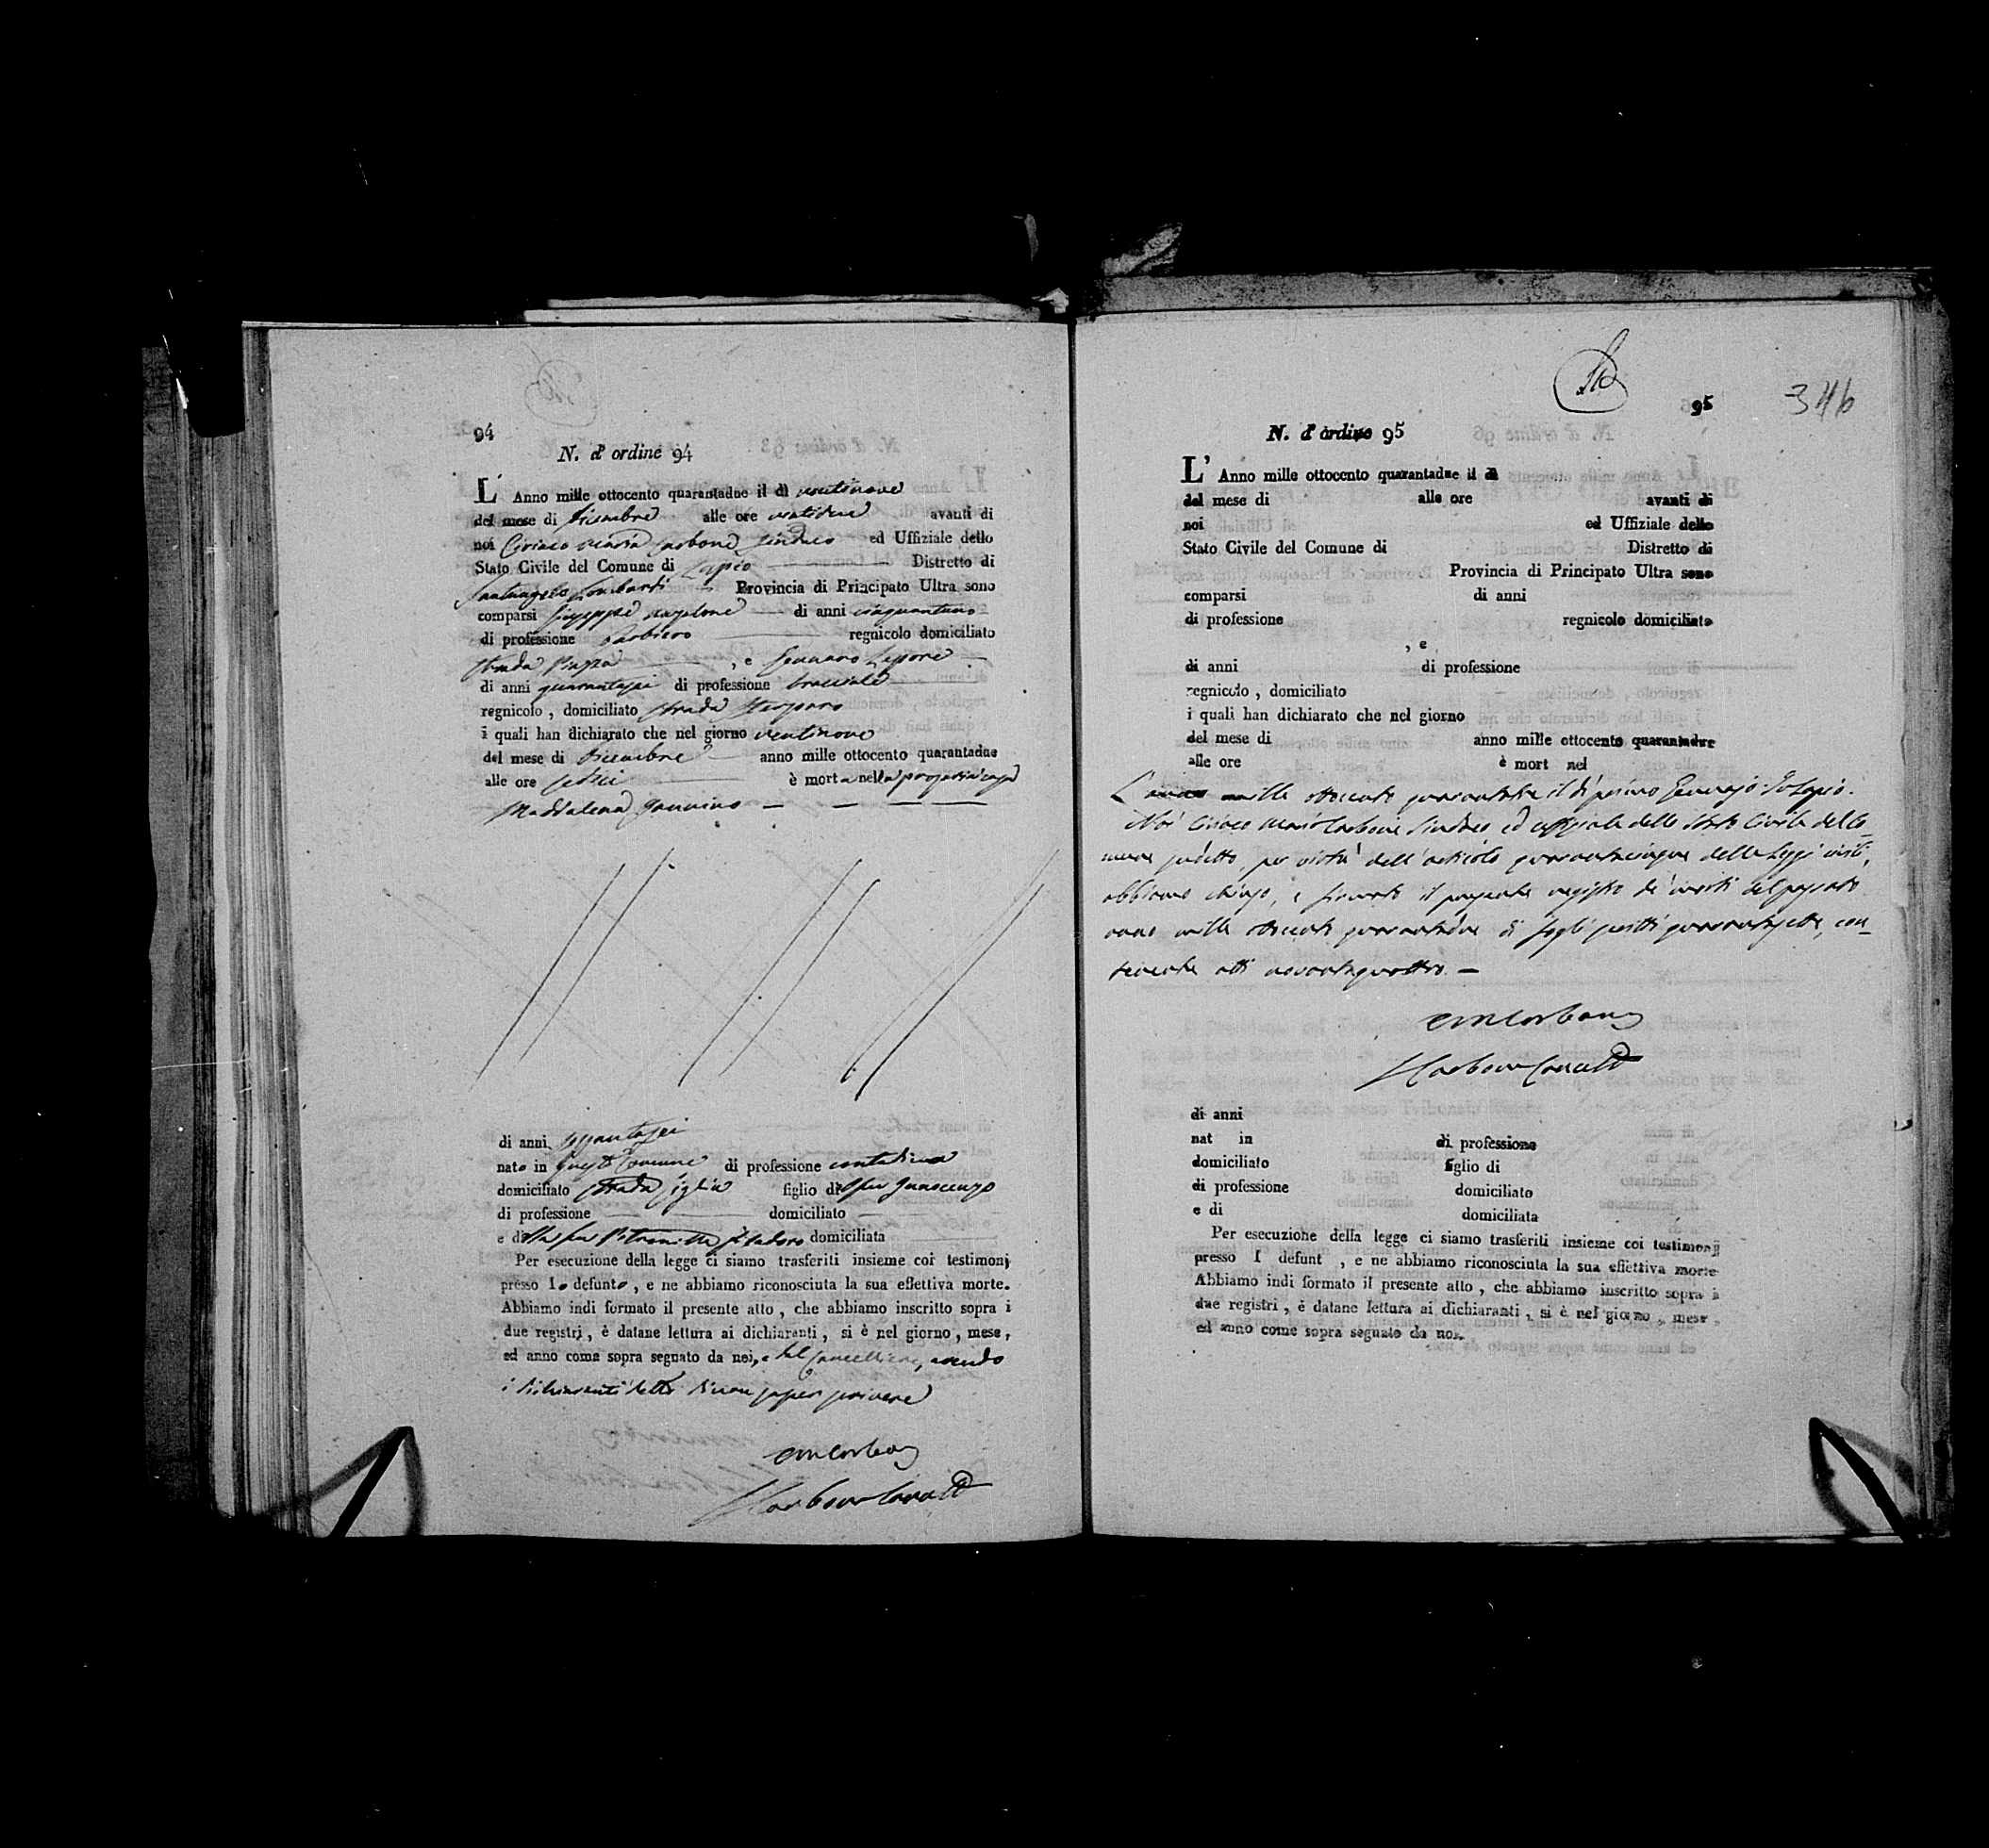 94
N. d' ordine 94
L' Anno mille ottocento quarantadue il dì ventinove
del mese di Dicembre alle ore ventidue avanti di
noi Ciriaco Maria Carbone Sindaco ed Uffiziale dello
Stato Civile del Comune di Lapio Distretto di
Santangelo Lombardi Provincia di Principato Ultra sono
comparsi Giuseppe di anni cinquantuno
di professione barbiero regnicolo domiciliato
strada Piazza , e Gennaro Lepore
di anni quarantasei di professione bracciale
regnicolo , domiciliato strada
i quali han dichiarato che nel giorno ventinove
del mese di Dicembre anno mille ottocento quarantadue
alle ore sedici è morta nella propria casa
Maddalena
di anni sessantasei
nato in questo Comune di professione contadina
domiciliato strada figlio di fu Innocenzo
di professione domiciliato
e della fu domiciliata
Per esecuzione della legge ci siamo trasferiti insieme coi testimonj
presso lo defunto , e ne abbiamo riconosciuta la sua effettiva morte.
Abbiamo indi formato il presente atto , che abbiamo inscritto sopra i
due registri , è datane lettura ai dichiaranti , si è nel giorno , mese ,
ed anno come sopra segnato da noi, e dal Cancelliere, avendo
i dichiaranti detto di non saper scrivere
CM Carbone
Carbone Cancell
95
346
N. d' ordine 95
L' Anno mille ottocento quarantadue il dì
del mese di alle ore avanti di
noi ed Uffiziale dello
Stato Civile del Comune di Distretto di
Provincia di Principato Ultra sono
comparsi di anni
di professione regnicolo domiciliato
, e
di anni di professione
regnicolo , domiciliato
i quali han dichiarato che nel giorno
del mese di anno mille ottocento quarantadue
alle ore è mort nel
L'anno mille ottocento quarantatre il dì primo Gennajo in Lapio.
Noi Ciriaco Maria Carbone Sindaco ed uffiziale dello Stato Civile del Co-
mune sudetto, per virtù dell'articolo quarantacinque delle Leggi civili,
abbiamo chiuso, e firmato il presente registro de' morti del passato
anno mille ottocento quarantadue di fogli scritti quarantasette, con-
tenente atti novantaquattro. —
CM Carbone
Carbone Cancell
di anni
nat in di professione
domiciliato figlio di
di professione domiciliato
e di domiciliata
Per esecuzione della legge ci siamo trasferiti insieme coi testimonj
presso l defunt , e ne abbiamo riconosciuta la sua effettiva morte
Abbiamo indi formato il presente atto , che abbiamo inscritto sopra i
due registri , è datane lettura ai dichiaranti , si è nel giorno , mese ,
ed anno come sopra segnato da noi.